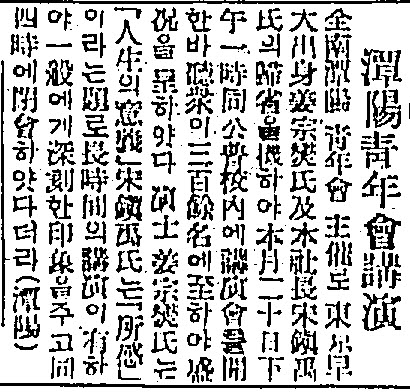 潭陽靑年會講演
全南潭陽 靑年會 主催로 東京早
大出身姜宗燮氏及本社長宋鎭禹
氏의 歸省을 機하야 本月二十日下
午一時同公普校內에 講演會를 開
한바 聽衆이 三百餘名에 至하야 盛
況을 呈하얏다 演士 姜宗燮氏는
「人生의 意義」宋鎭禹氏는「所感」
이라는 題로 長時間의 講演이 有하
야 一般에게 深刻한 印象을 주고 同
四時에 閉會하얏다더라(潭陽)